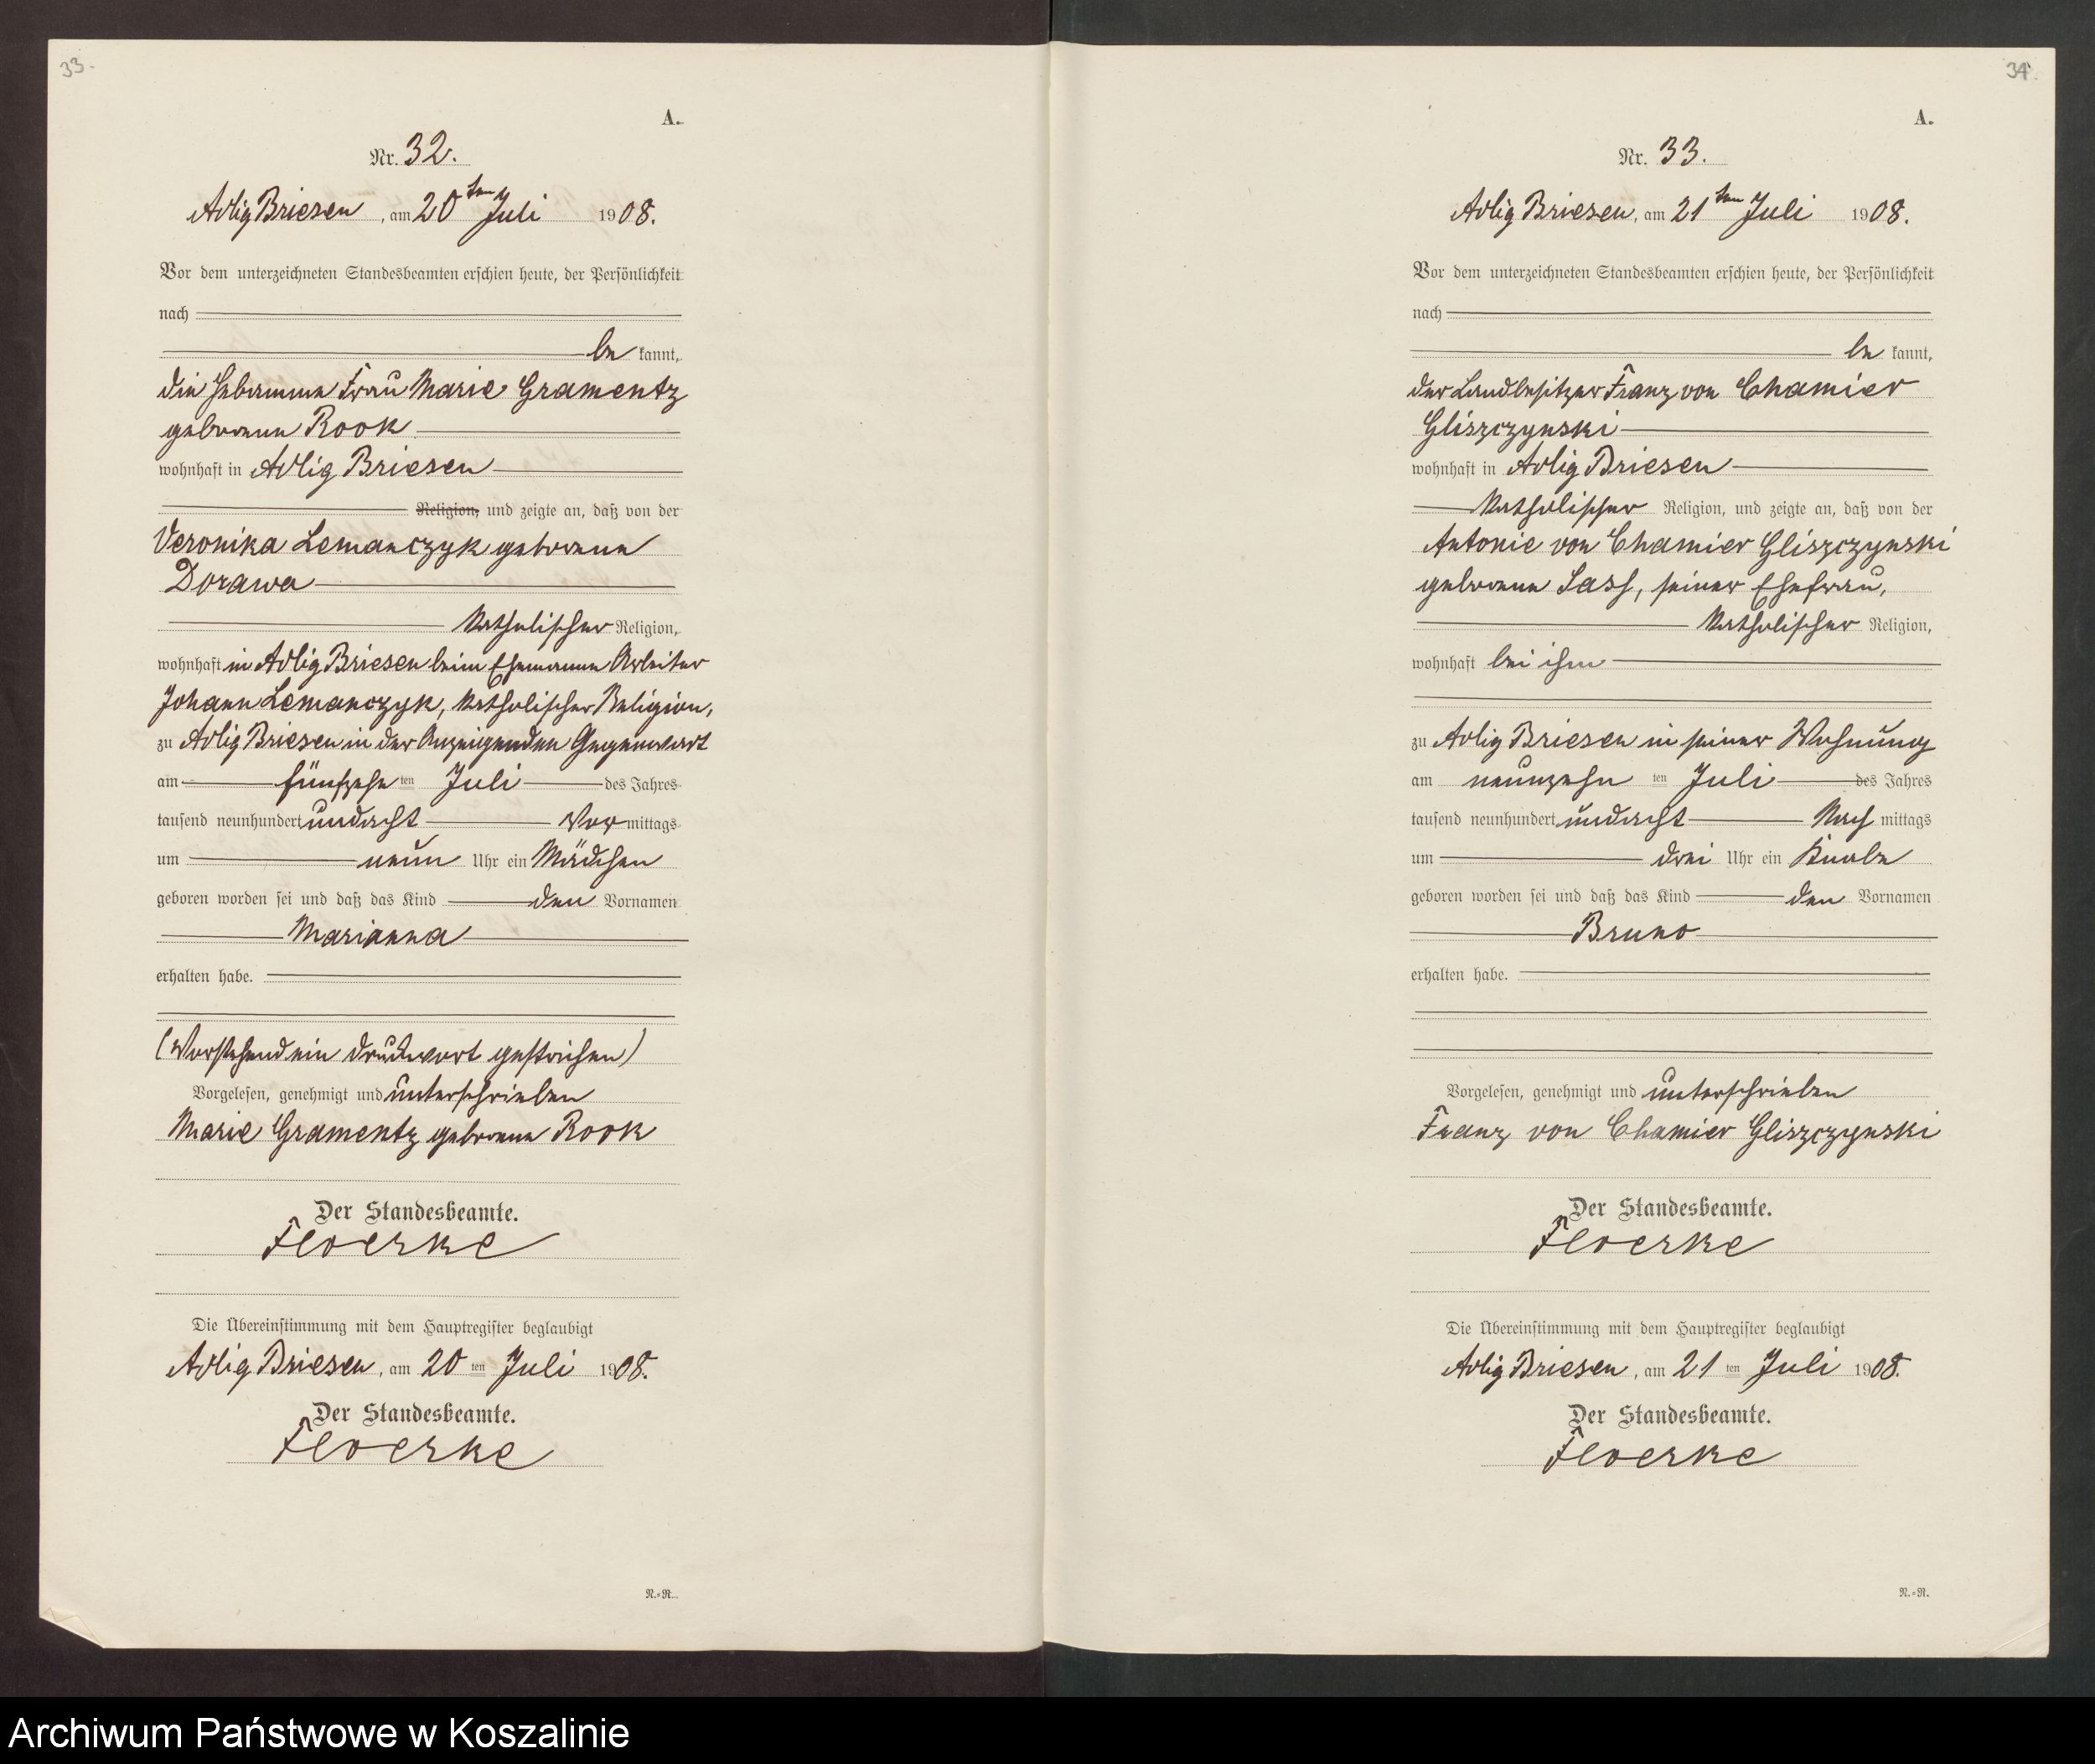 33.
A.
Nr. 32.
Adlig Briesen, am 20ten Juli 1908.
Vor dem unterzeichneten Standesbeamten erschien heute, der Persönlichkeit
nach
be kannt,
die Hebamme Frau Marie Gramentz
geborene Rook
wohnhaft in Adlig Briesen
Religion, und zeigte an, daß von der
Veronika Lemanczyk geborene
Dorawa
katholischer Religion,
wohnhaft in Adlig Briesen beim Ehemanne Arbeiter
Johann Lemanczyk, katholischer Religion,
zu Adlig Briesen in der Anzeigenden Gegenwart
am fünfzehn ten Juli des Jahres
tausend neunhundert undacht Vor mittags
um neun Uhr ein Mädchen
geboren worden sei und daß das Kind den Vornamen
Marianna
erhalten habe.
(Vorstehend ein Druckwort gestrichen)
Vorgelesen, genehmigt und unterschrieben
Marie Gramentz geborene Rook
Der Standesbeamte.
Floerke
Die Übereinstimmung mit dem Hauptregister beglaubigt
Adlig Briesen, am 20 ten Juli 1908.
Der Standesbeamte.
Floerke
N.-R.
34.
A.
Nr. 33.
Adlig Briesen, am 21ten Juli 1908.
Vor dem unterzeichneten Standesbeamten erschien heute, der Persönlichkeit
nach
be kannt,
der Landbesitzer Franz von Chamier
Gliszczynski
wohnhaft in Adlig Briesen
katholischer Religion, und zeigte an, daß von der
Antonie von Chamier Gliszczynski
geborene Sass, seiner Ehefrau,
katholischer Religion,
wohnhaft bei ihm
zu Adlig Briesen in seiner Wohnung
am neunzehn ten Juli des Jahres
tausend neunhundert undacht Nach mittags
um drei Uhr ein Knabe
geboren worden sei und daß das Kind den Vornamen
Bruno
erhalten habe.
Vorgelesen, genehmigt und unterschrieben
Franz von Chamier Gliszczynski
Der Standesbeamte.
Floerke
Die Übereinstimmung mit dem Hauptregister beglaubigt
Adlig Briesen, am 21 ten Juli 1908.
Der Standesbeamte.
Floerke
N.-R.
Archiwum Państwowe w Koszalinie